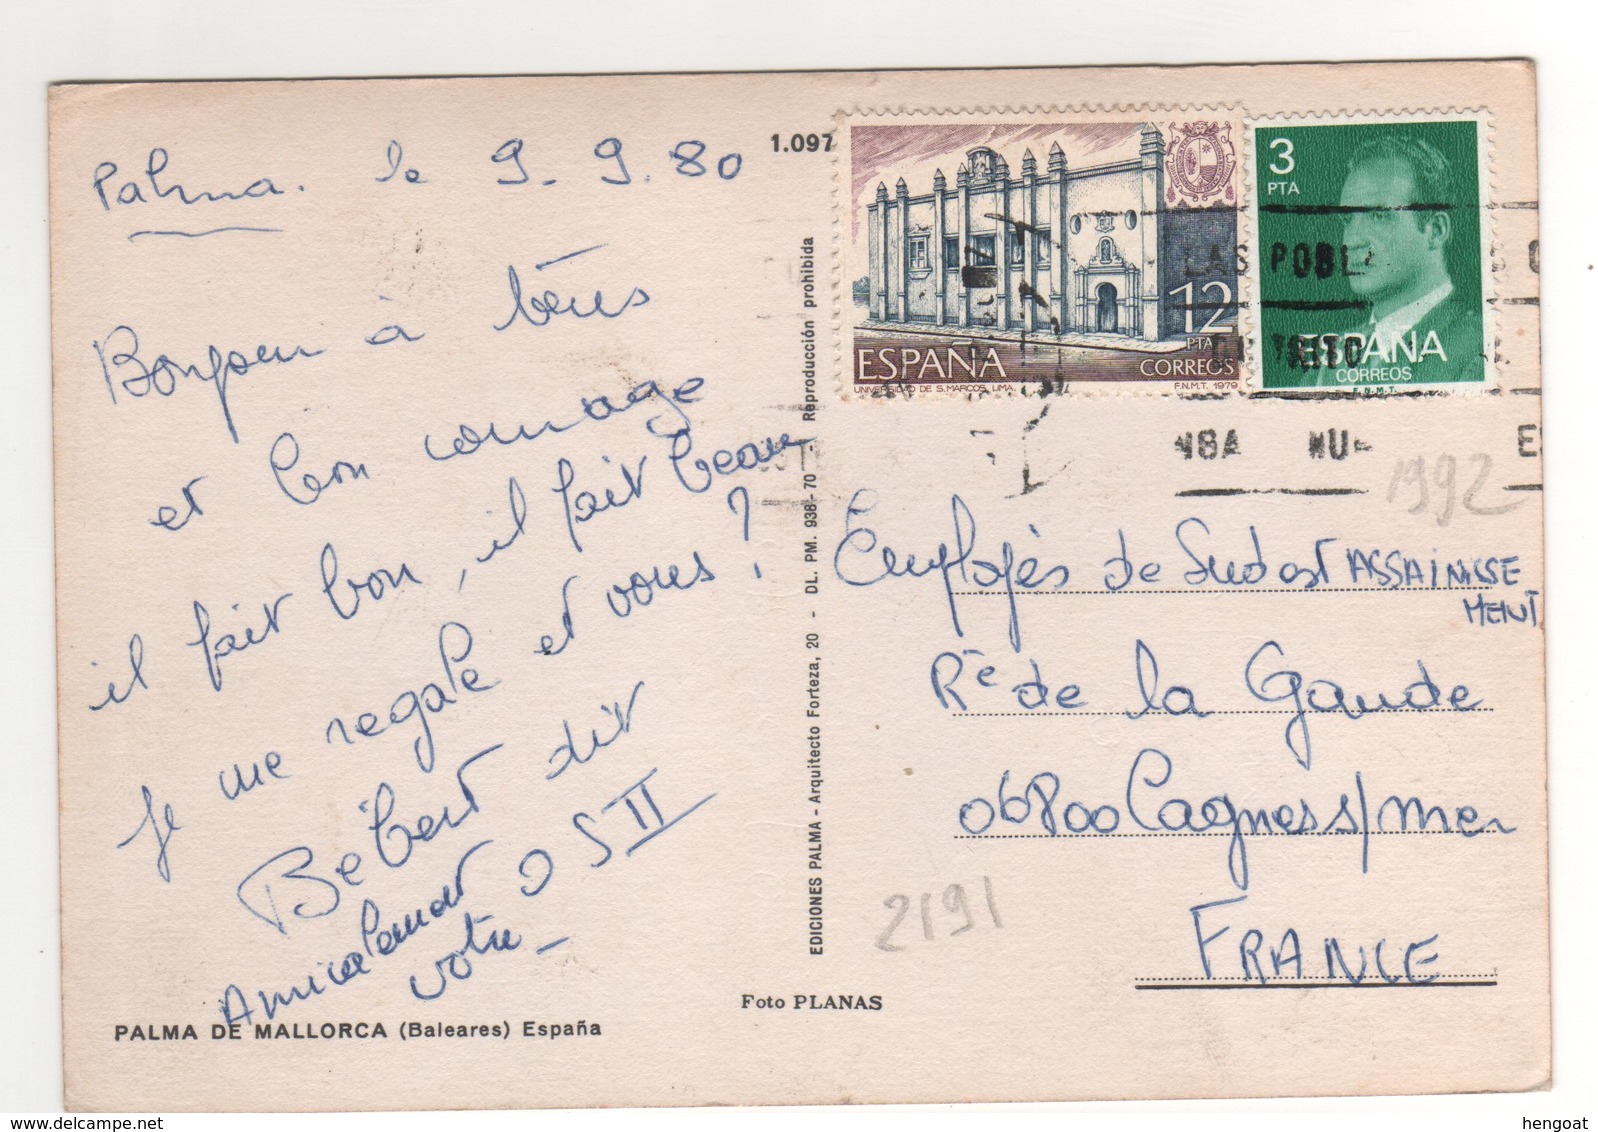 Palma. le 9. 9. 80
Bonjour à tous
et bon courage
il fait bon, il fait beau
Je me regale et vous?
Bébert dit
OS II
Amicalement
votre
PALMA DE MALLORCA (Baleares) España
Foto PLANAS
EDICIONES PALMA - Arquitecto Forteza, 20 - DL. PM. 938-70 - Reproducción prohibida
1.097
12
PTA
ESPAÑA CORREOS
UNIVERSIDAD DE S. MARCOS, LIMA. F.N.M.T. 1979
3
PTA
ESPAÑA
CORREOS
F.N.M.T.
LAS POBL
RITO
1992
Employés de Sudest ASSAINISSE
MENT
Rte de la Gaude
06800 Cagnes s/mer
FRANCE
2191
hengoat